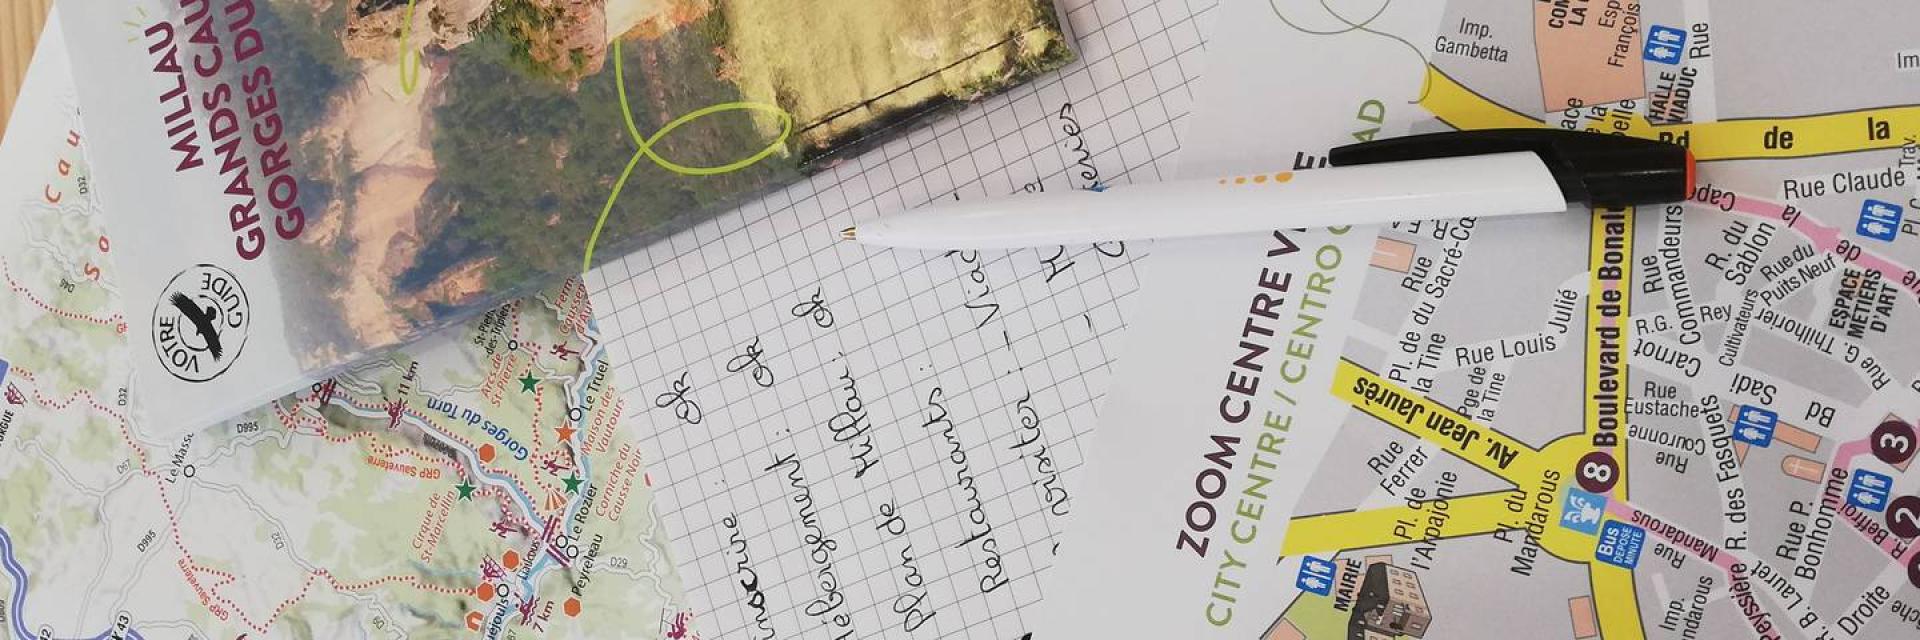 MILLAU
GRANDS CAU
GORGES DU
VOTRE GUIDE
Cau
So
D32
D46
D32
D67
D995
D995
D32
D9
D29
Le Mass
GRP Sauveterre
GRP Sauveterre
11 km
Gorges du Tarn
Cirque de
St-Marcellin
Arcs de
St-Pierre
Le Truel
Maison des
Vautours
Corniche du
Causse Noir
Le Rozier
Peyreleau
7 km
ok
Hébergement : ok
Plan de Millau : ok
Restaurants :
visiter - Viad
ZOOM CENTRE V
CITY CENTRE / CENTRO
AD
Imp.
Gambetta
François
HALLE
VIADUC
Rue
Bd de la
Rue Claude
Capelle
la
de
R. du
Sablon
Rue du
Puits Neuf
ESPACE
MÉTIERS
D'ART
Rue
Commandeurs
Rue
du Sacré-Co
Pl. de
la Tine
Pge de
la Tine
Rue Louis Julié
Boulevard de Bonald
8
R.G. Rey
Cultivateurs
Rue G. Thilhorier
Sadi
Carnot
Bd
Rue
Eustache
Rue
Couronne
R. des Fasquets
Av. Jean Jaurès
Rue
Ferrer
Pl. de
l'Arpajonie
Pl. du
Mandarous
Bus
DÉPOSE
MINUTE
Rue Mandarous
MAIRIE
Rue P.
Bonhomme
R. Beffroi
3
2
R. B. Lauret
Droite
Imp.